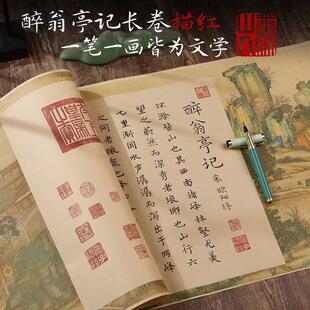 醉翁亭记长卷描红
一笔一画皆为文学
醉翁亭记
宋 欧阳修
环滁皆山也其西南诸峰林壑尤美
望之蔚然而深秀者琅琊也山行六
七里渐闻水声潺潺而泻出于两峰
之间者酿泉也